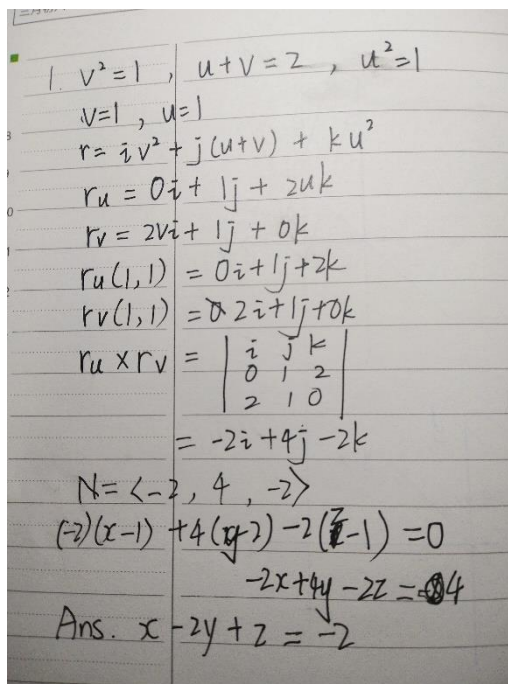 1. v²=1 , u+v=2 , u²=1
v=1 , u=1
r= iv²+ j(u+v) + ku²
ru = 0i+ 1j + 2uk
rv = 2vi+ 1j + 0k
ru(1,1) = 0i+1j+2k
rv(1,1) = 2i+1j+0k
ru × rv = | i j k |
| 0 1 2 |
| 2 1 0 |
= -2i+4j-2k
N= <-2, 4, -2>
(-2)(x-1) +4(y-2) -2(z-1) =0
-2x+4y-2z = 4
Ans. x-2y+z = -2